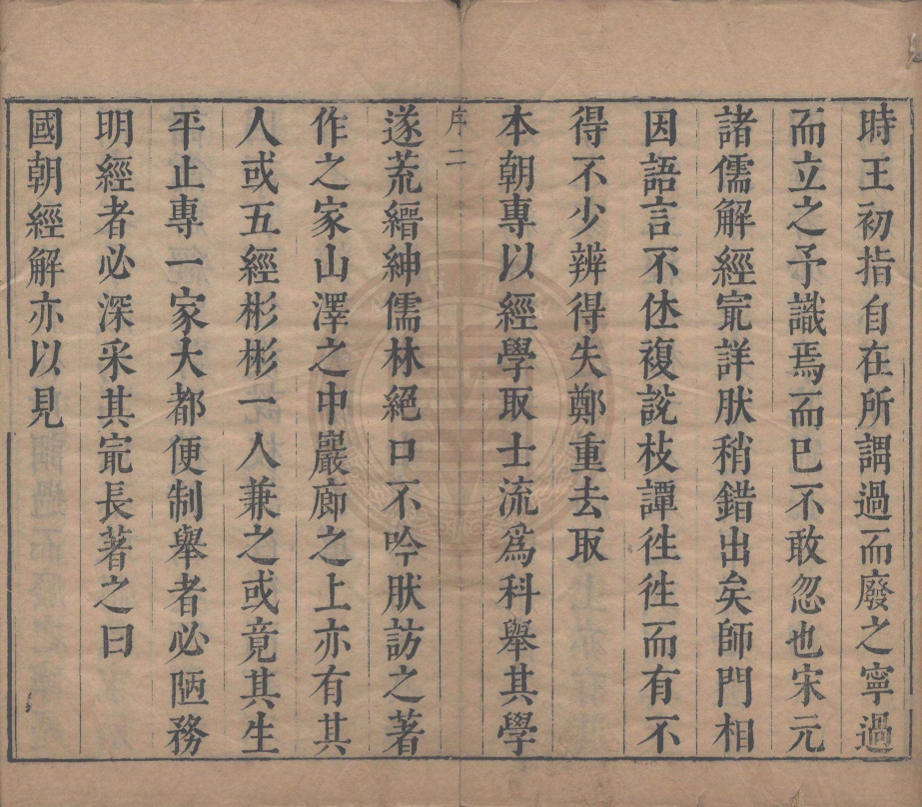 時王初指自在所謂過而廢之寧過
而立之予識焉而已不敢忽也宋元
諸儒解經㝡詳肰稍錯出矣師門相
因語言不伕複說枝譚徃徃而有不
得不少辨得失鄭重去取
本朝專以經學取士流爲科舉其學
序二
遂荒縉紳儒林絕口不吟肰訪之著
作之家山澤之中巖廊之上亦有其
人或五經彬彬一人兼之或竟其生
平止專一家大都便制舉者必陋務
明經者必深采其㝡長著之曰
國朝經解亦以見